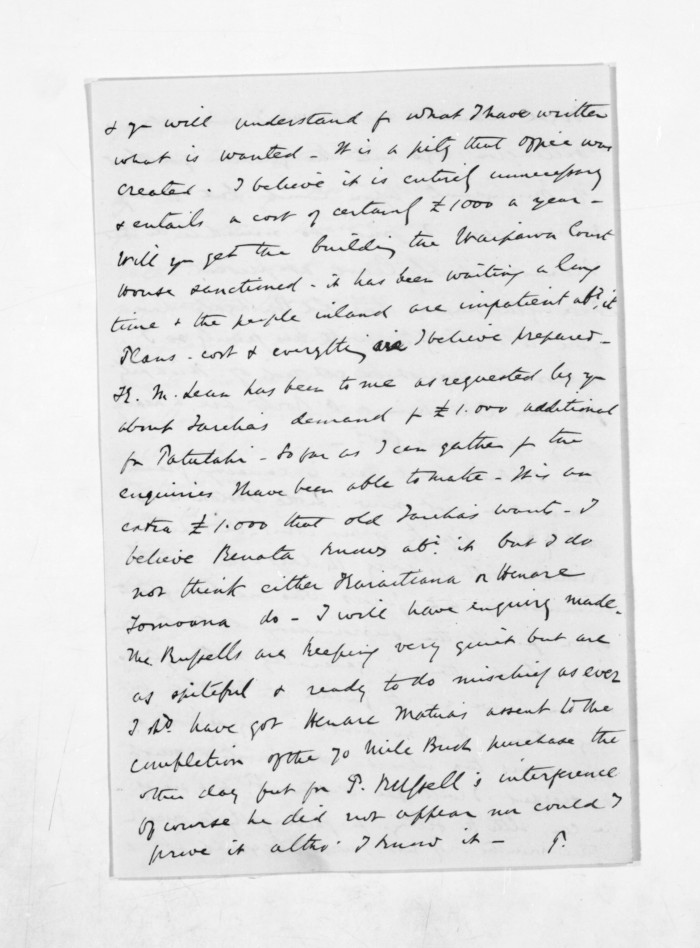 & yr will understand fr what I have written
what is wanted - It is a pity that office was
created. I believe it is entirely unnecessary
& entails a cost of certainly £1000 a year -
Will yr get the building the Waipawa Court
House sanctioned - it has been waiting a long
time & the people inland are impatient abt it
Plans - cost & everything are I believe prepared -
McLean has been to me as requested by yr
about Tareha's demand fr £1.000 additional
for Patutahi - So far as I can gather fr the
enquiries I have been able to make - It is an
extra £1.000 that old Tareha's wants - I
believe Renata knows abt it but I do
not think either Karaitiana or Henare
Tomoana do - I will have enquiry made.
The Russells are keeping very quiet but are
as spiteful & ready to do mischief as ever
I shd have got Henare Matua's assent to the
completion of the 70 Mile Bush purchase the
other day but for P. Russell's interference
Of course he did not appear nor could I
prove it altho' I know it - P.